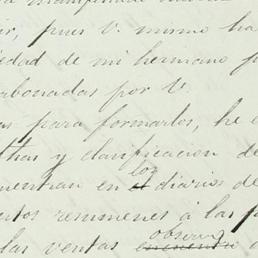 ir, pues V. mismo ha
edad de mi hermano
abonadas por V.
as para formarlos, he
y clasificacion de
cuentran en los diarios de
resumenes á las
las ventas observa